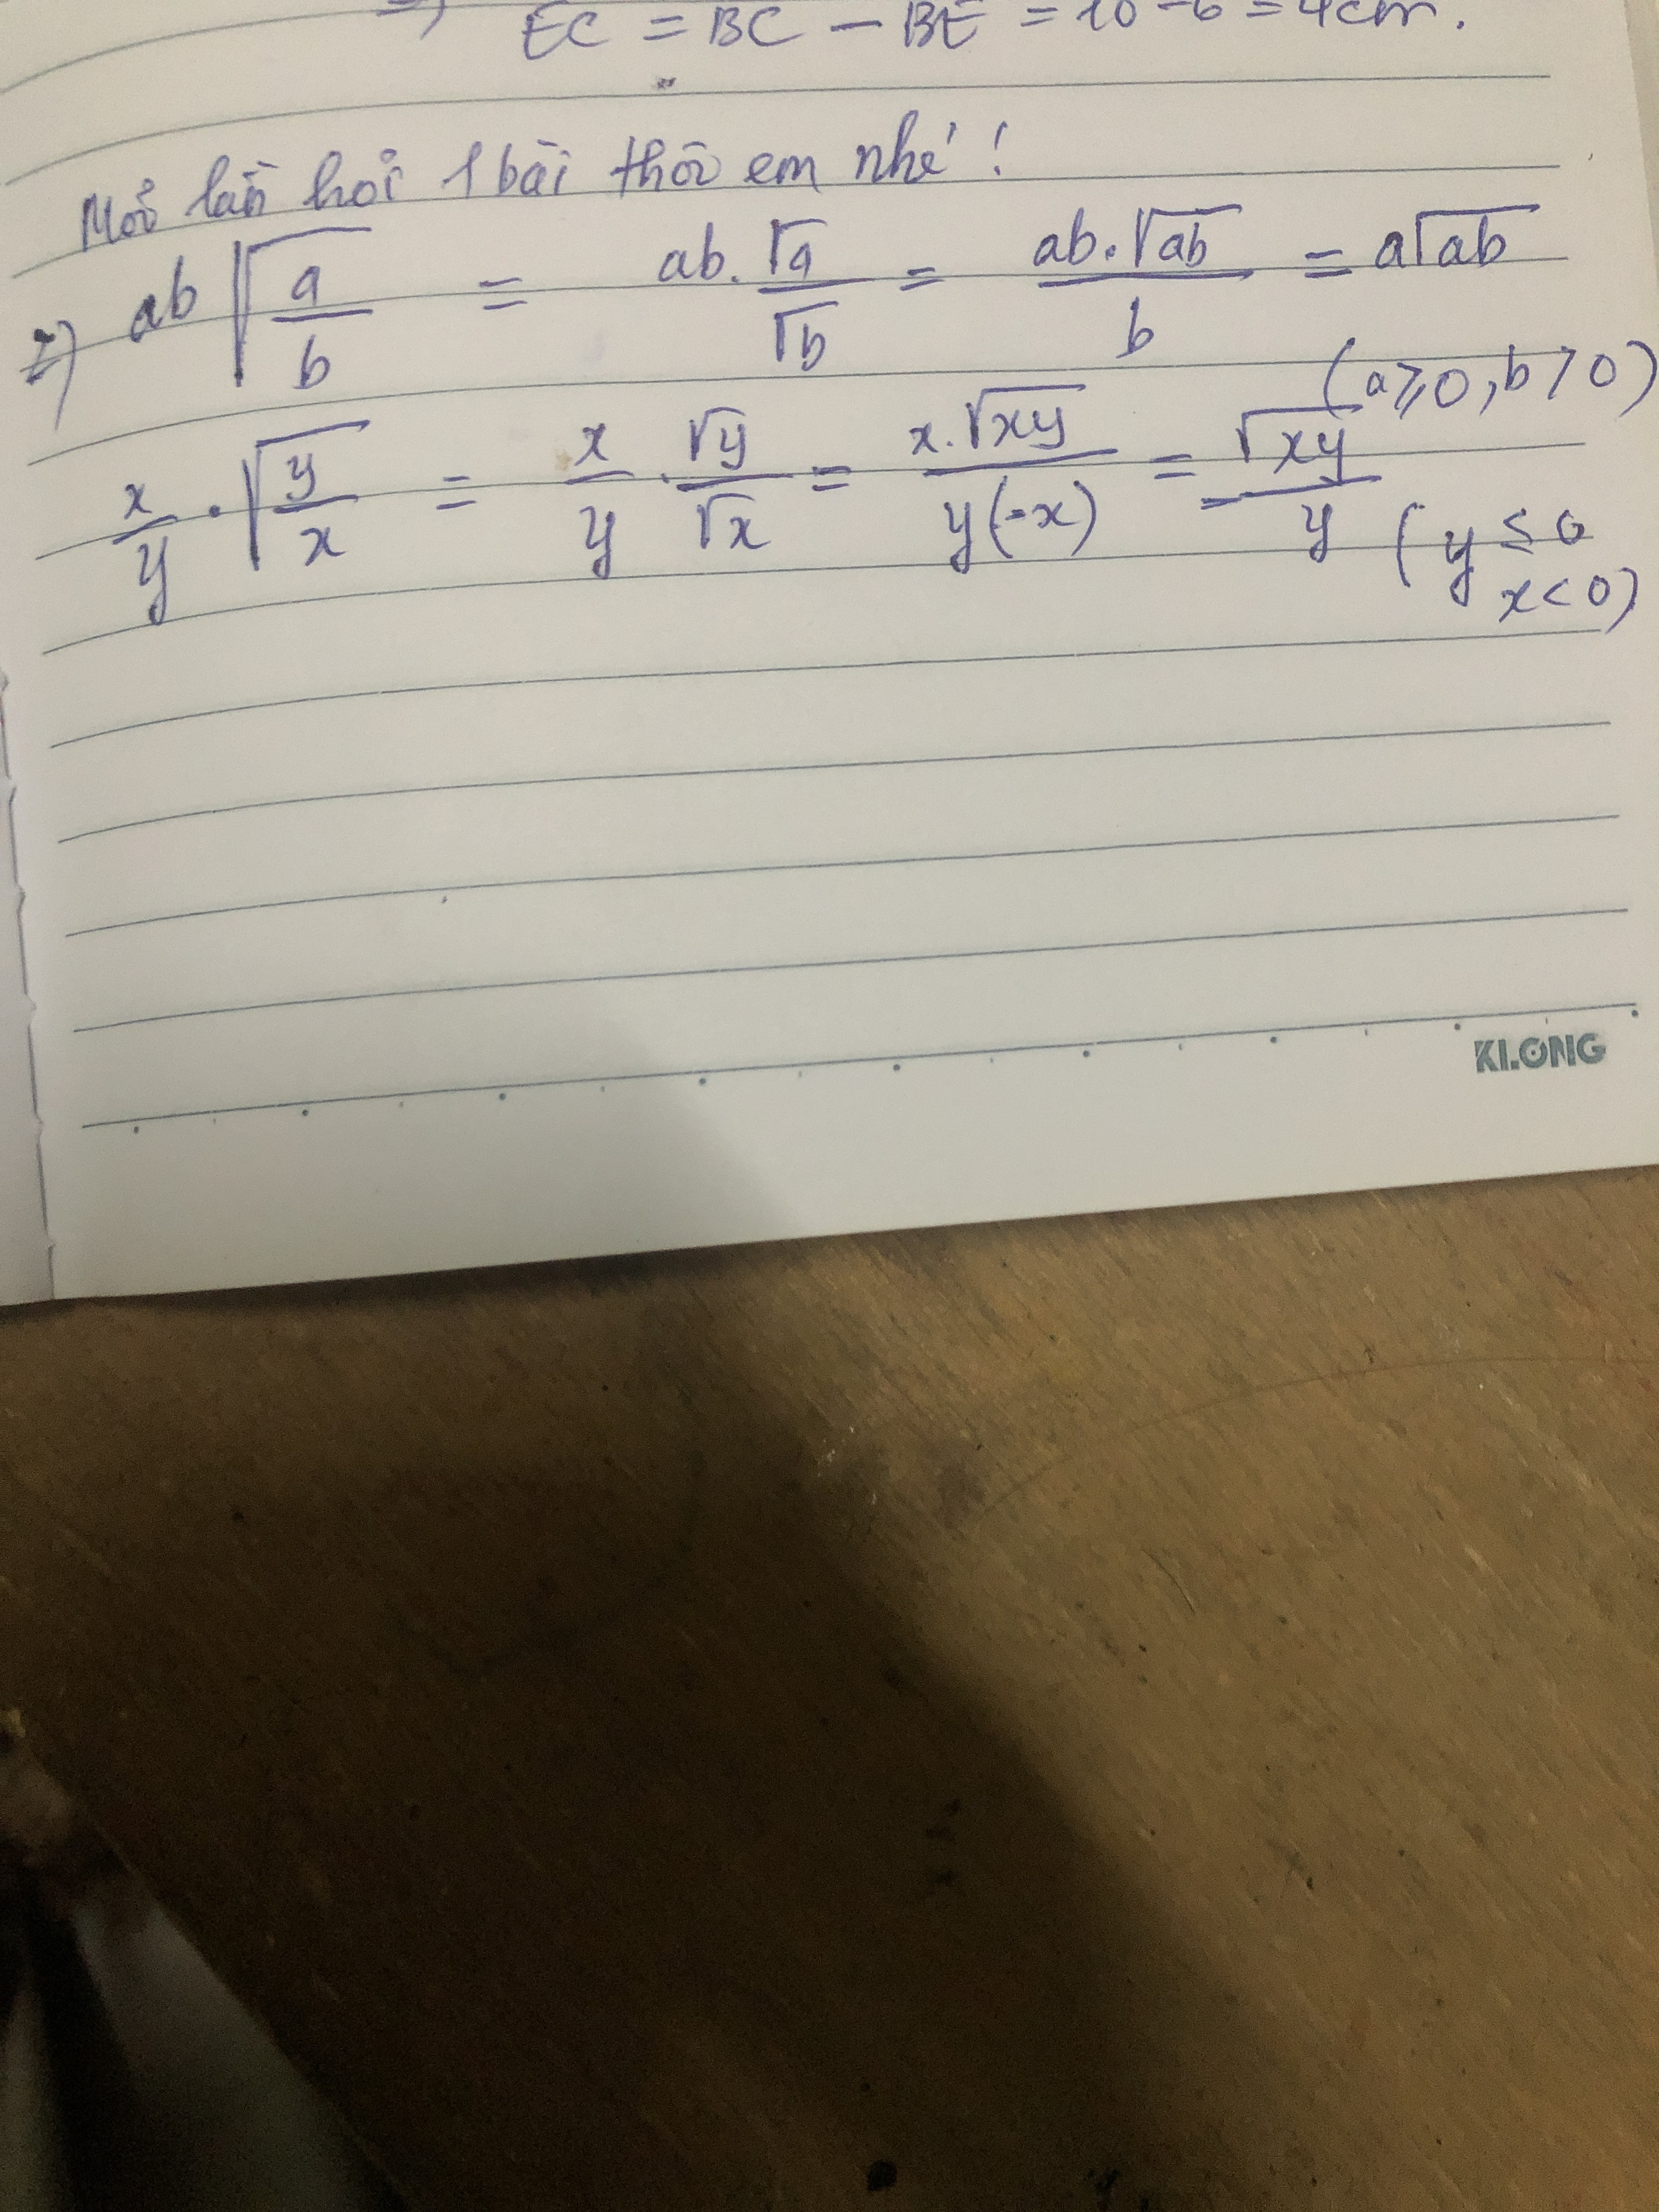 => EC = BC - BE = 10 - 6 = 4cm.
Mỗi lần hỏi 1 bài thôi em nhé!
2) ab√(a/b) = ab.√a/√b = ab.√ab/b = a√ab
(a ≥ 0, b > 0)
x/y . √(y/x) = x/y . √y/√x = x.√xy/y(-x) = -√xy/y (y ≤ 0
x < 0)
KLONG